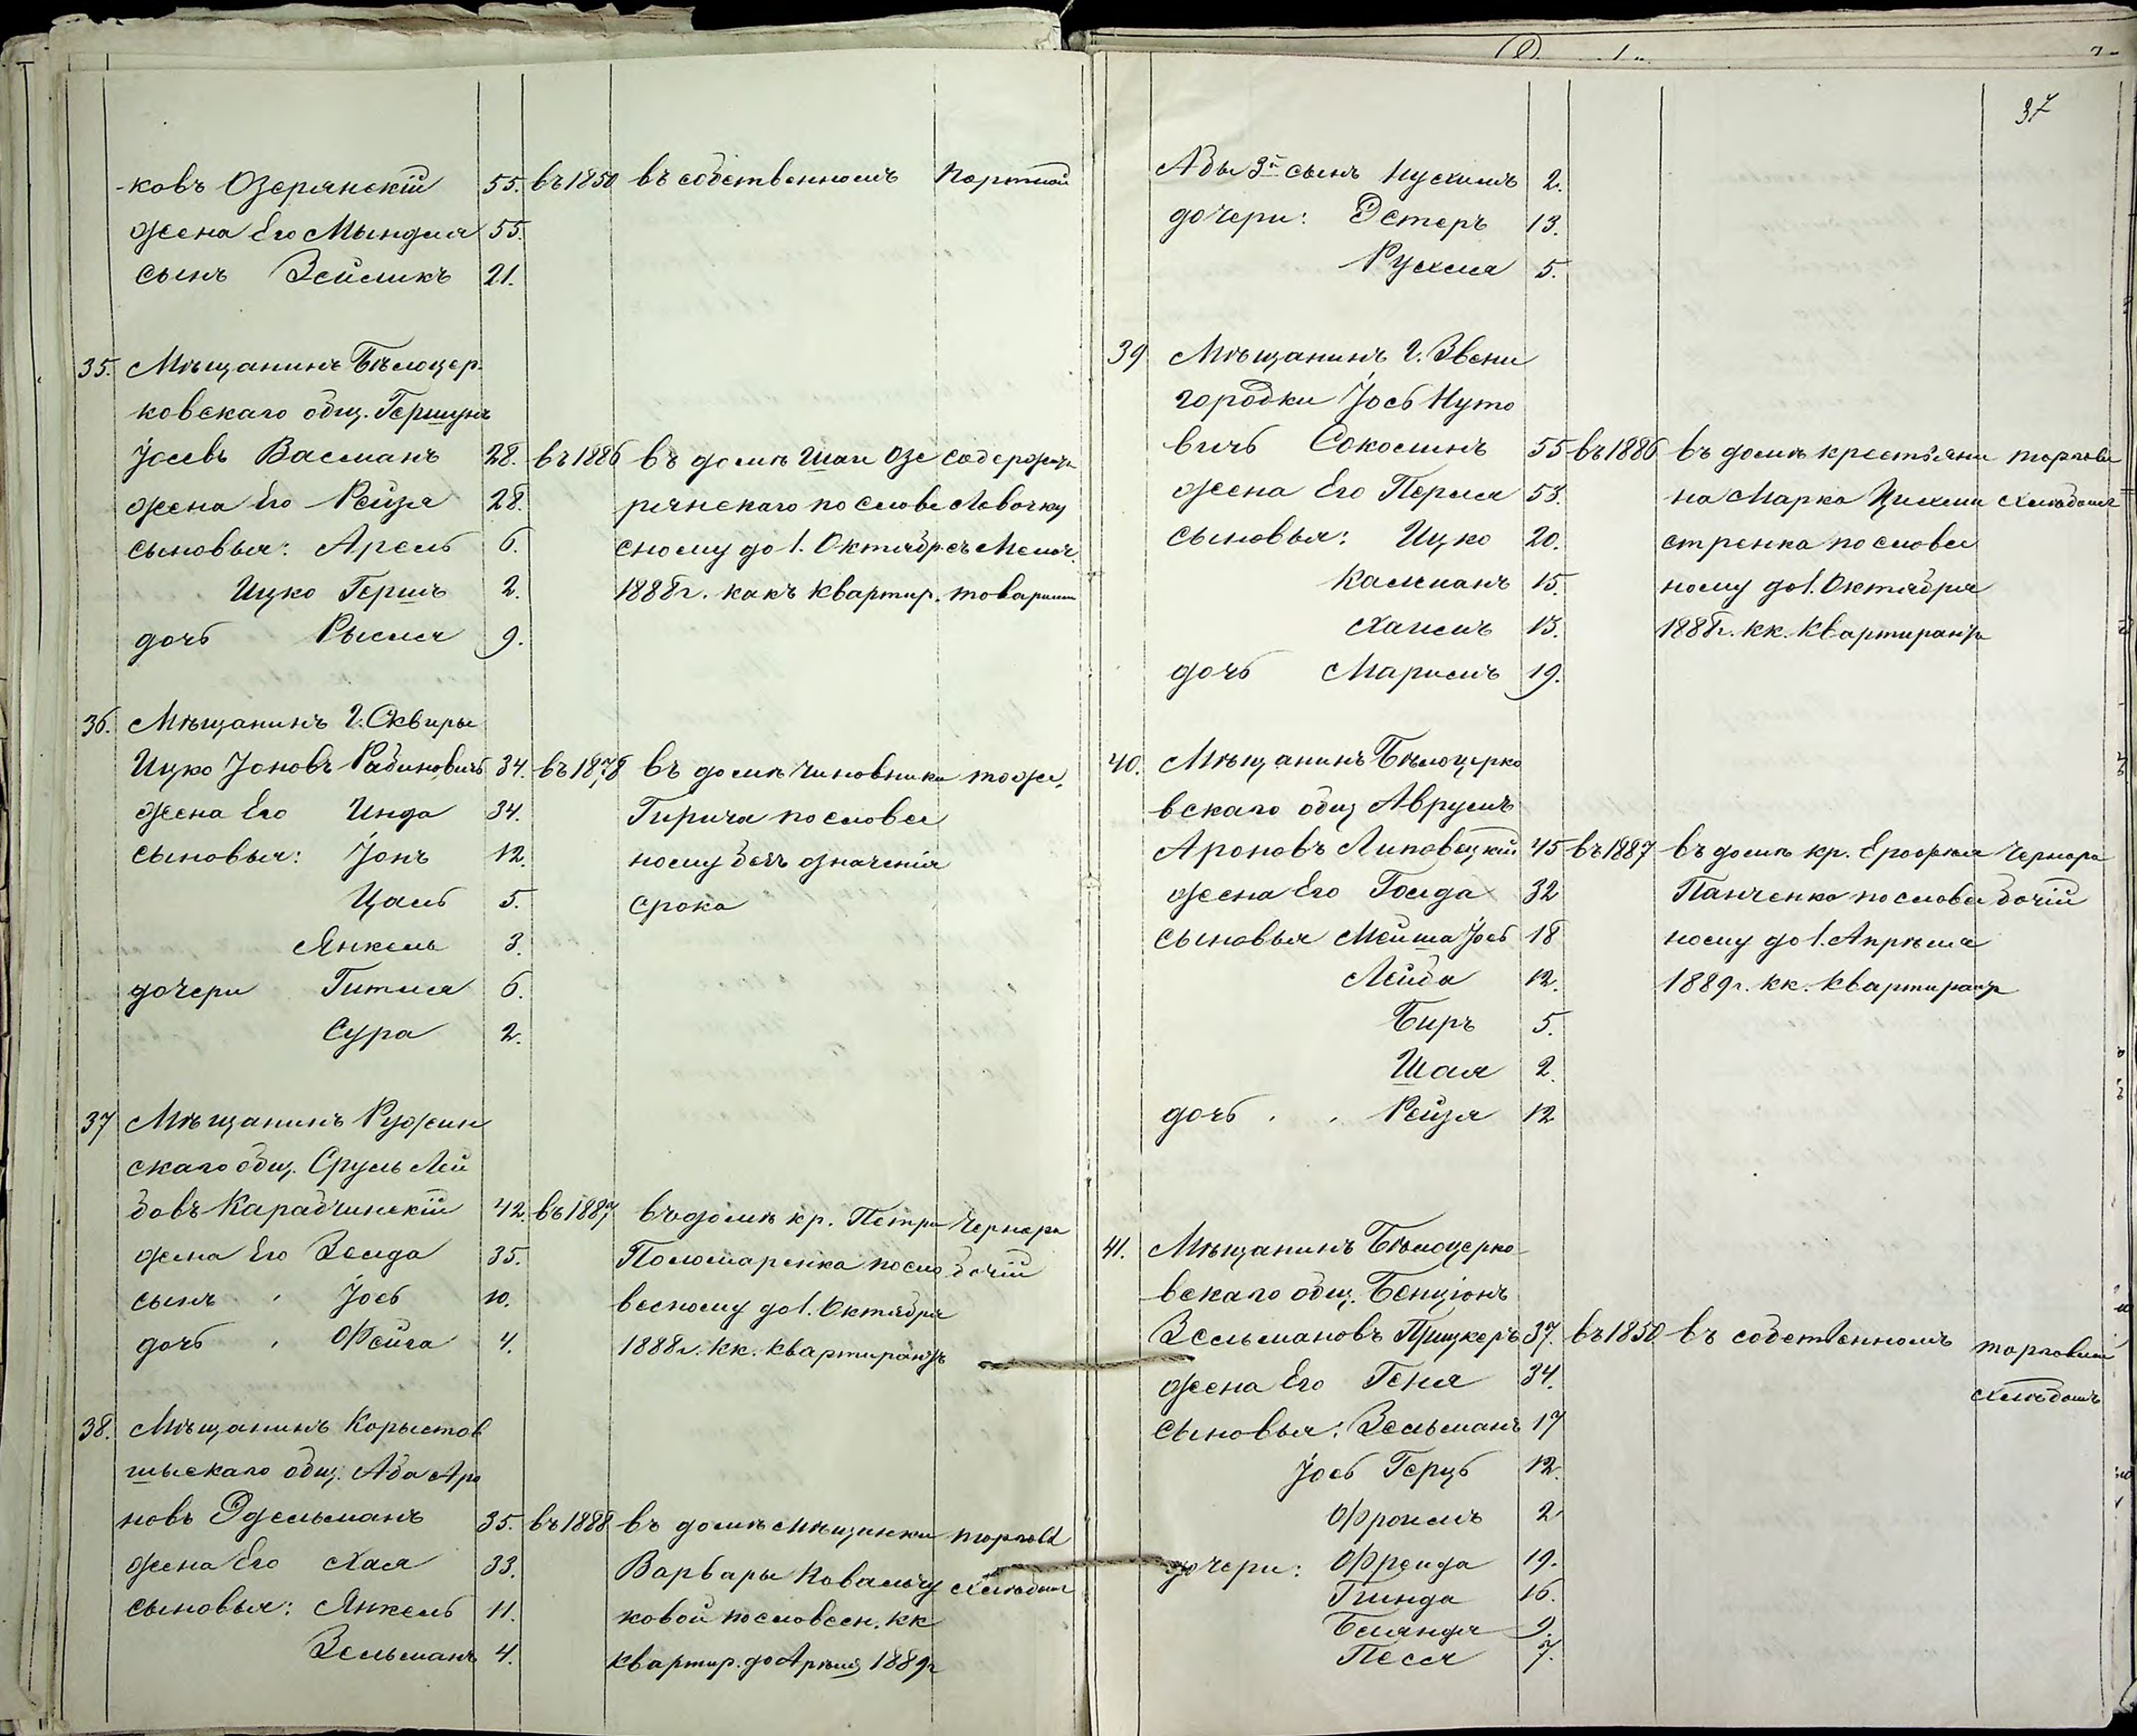 -ковъ Озерянскій 55. въ 1850 въ собственномъ Портной
жена Его Мындля 55.
сынъ Зейликъ 21.
35. Мѣщанинъ Бѣлоцер-
ковскаго общ. Гершунъ
Іосевъ Васманъ 28. въ 1886 въ домѣ Шаи Озе содержитъ
жена Его Рейзя 28. рянскаго по слове Лавочку
сыновья: Арель 6. сному до 1. Октябр. съ Мелоч.
Ицко Гершъ 2. 1888 г. какъ квартир. товарами
дочь Рысля 9.
36. Мѣщанинъ г. Сквиры
Ицко Іоновъ Рабиновичъ 34. въ 1878 въ домѣ чиновника тоже.
жена Его Инда 34. Гирича по словес
сыновья: Іонъ 12. ному безъ означенія
Цаль 5. срока
Янкель 3.
дочери Гитля 6.
Сура 2.
37 Мѣщанинъ Ружин
скаго общ. Сруль Лей
бовъ Карабчинскій 42. въ 1887 въ домѣ кр. Петра Чернора
жена Его Зельда 35. Поломаренка по сло бочій
сынъ Іось 10. весному до 1. Октября
дочь Фейга 4. 1888 г. кк. квартирантъ
38. Мѣщанинъ Корыстов
шыскаго общ. Аба Аро
новъ Эдельманъ 35. въ 1888 въ домѣ мѣщанки торговл
жена Его Хая 33. Варвары Ковальчу хлѣбомъ
сыновья: Янкель 11. ковой по словесн. кк
Зельманъ 4. квартир. до Апрѣля 1889 г
37
Абы 3й сынъ Нухимъ 2.
дочери: Эстеръ 13.
Рухля 5.
39 Мѣщанинъ г. Звени
городки Іось Нуто
вичъ Соколинъ 55 въ 1886 въ домѣ крестьяни торговл
жена Его Перля 53. на Марка хлѣбомъ
сыновья: Ицко 20. стренка по словес
Калманъ 15. ному до 1. Октября
Хаимъ 13. 1888 г. кк. квартирантъ
дочь Маріемъ 19.
40. Мѣщанинъ Бѣлоцерко
вскаго общ Аврумъ
Ароновъ Липовецкій 45 въ 1887 въ домѣ кр. Ерофея Чернора
жена Его Голда 32 Панченко по словес бочій
сыновья Мейша Іось 18 ному до 1. Апрѣля
Лейба 12. 1889 г. кк. квартирантъ
Биръ 5.
Шая 2.
дочь Рейзя 12
41. Мѣщанинъ Бѣлоцерко-
вскаго общ. Бенціонъ
Зельмановъ Прицкеръ 37. въ 1850 въ собственномъ торговля
жена Его Геня 34. хлѣбомъ
сыновья: Зельманъ 17
Іось Герцъ 12.
Фроимъ 2
дочери: Фрейда 19.
Гинда 16.
Блянця 9.
Песя 7.